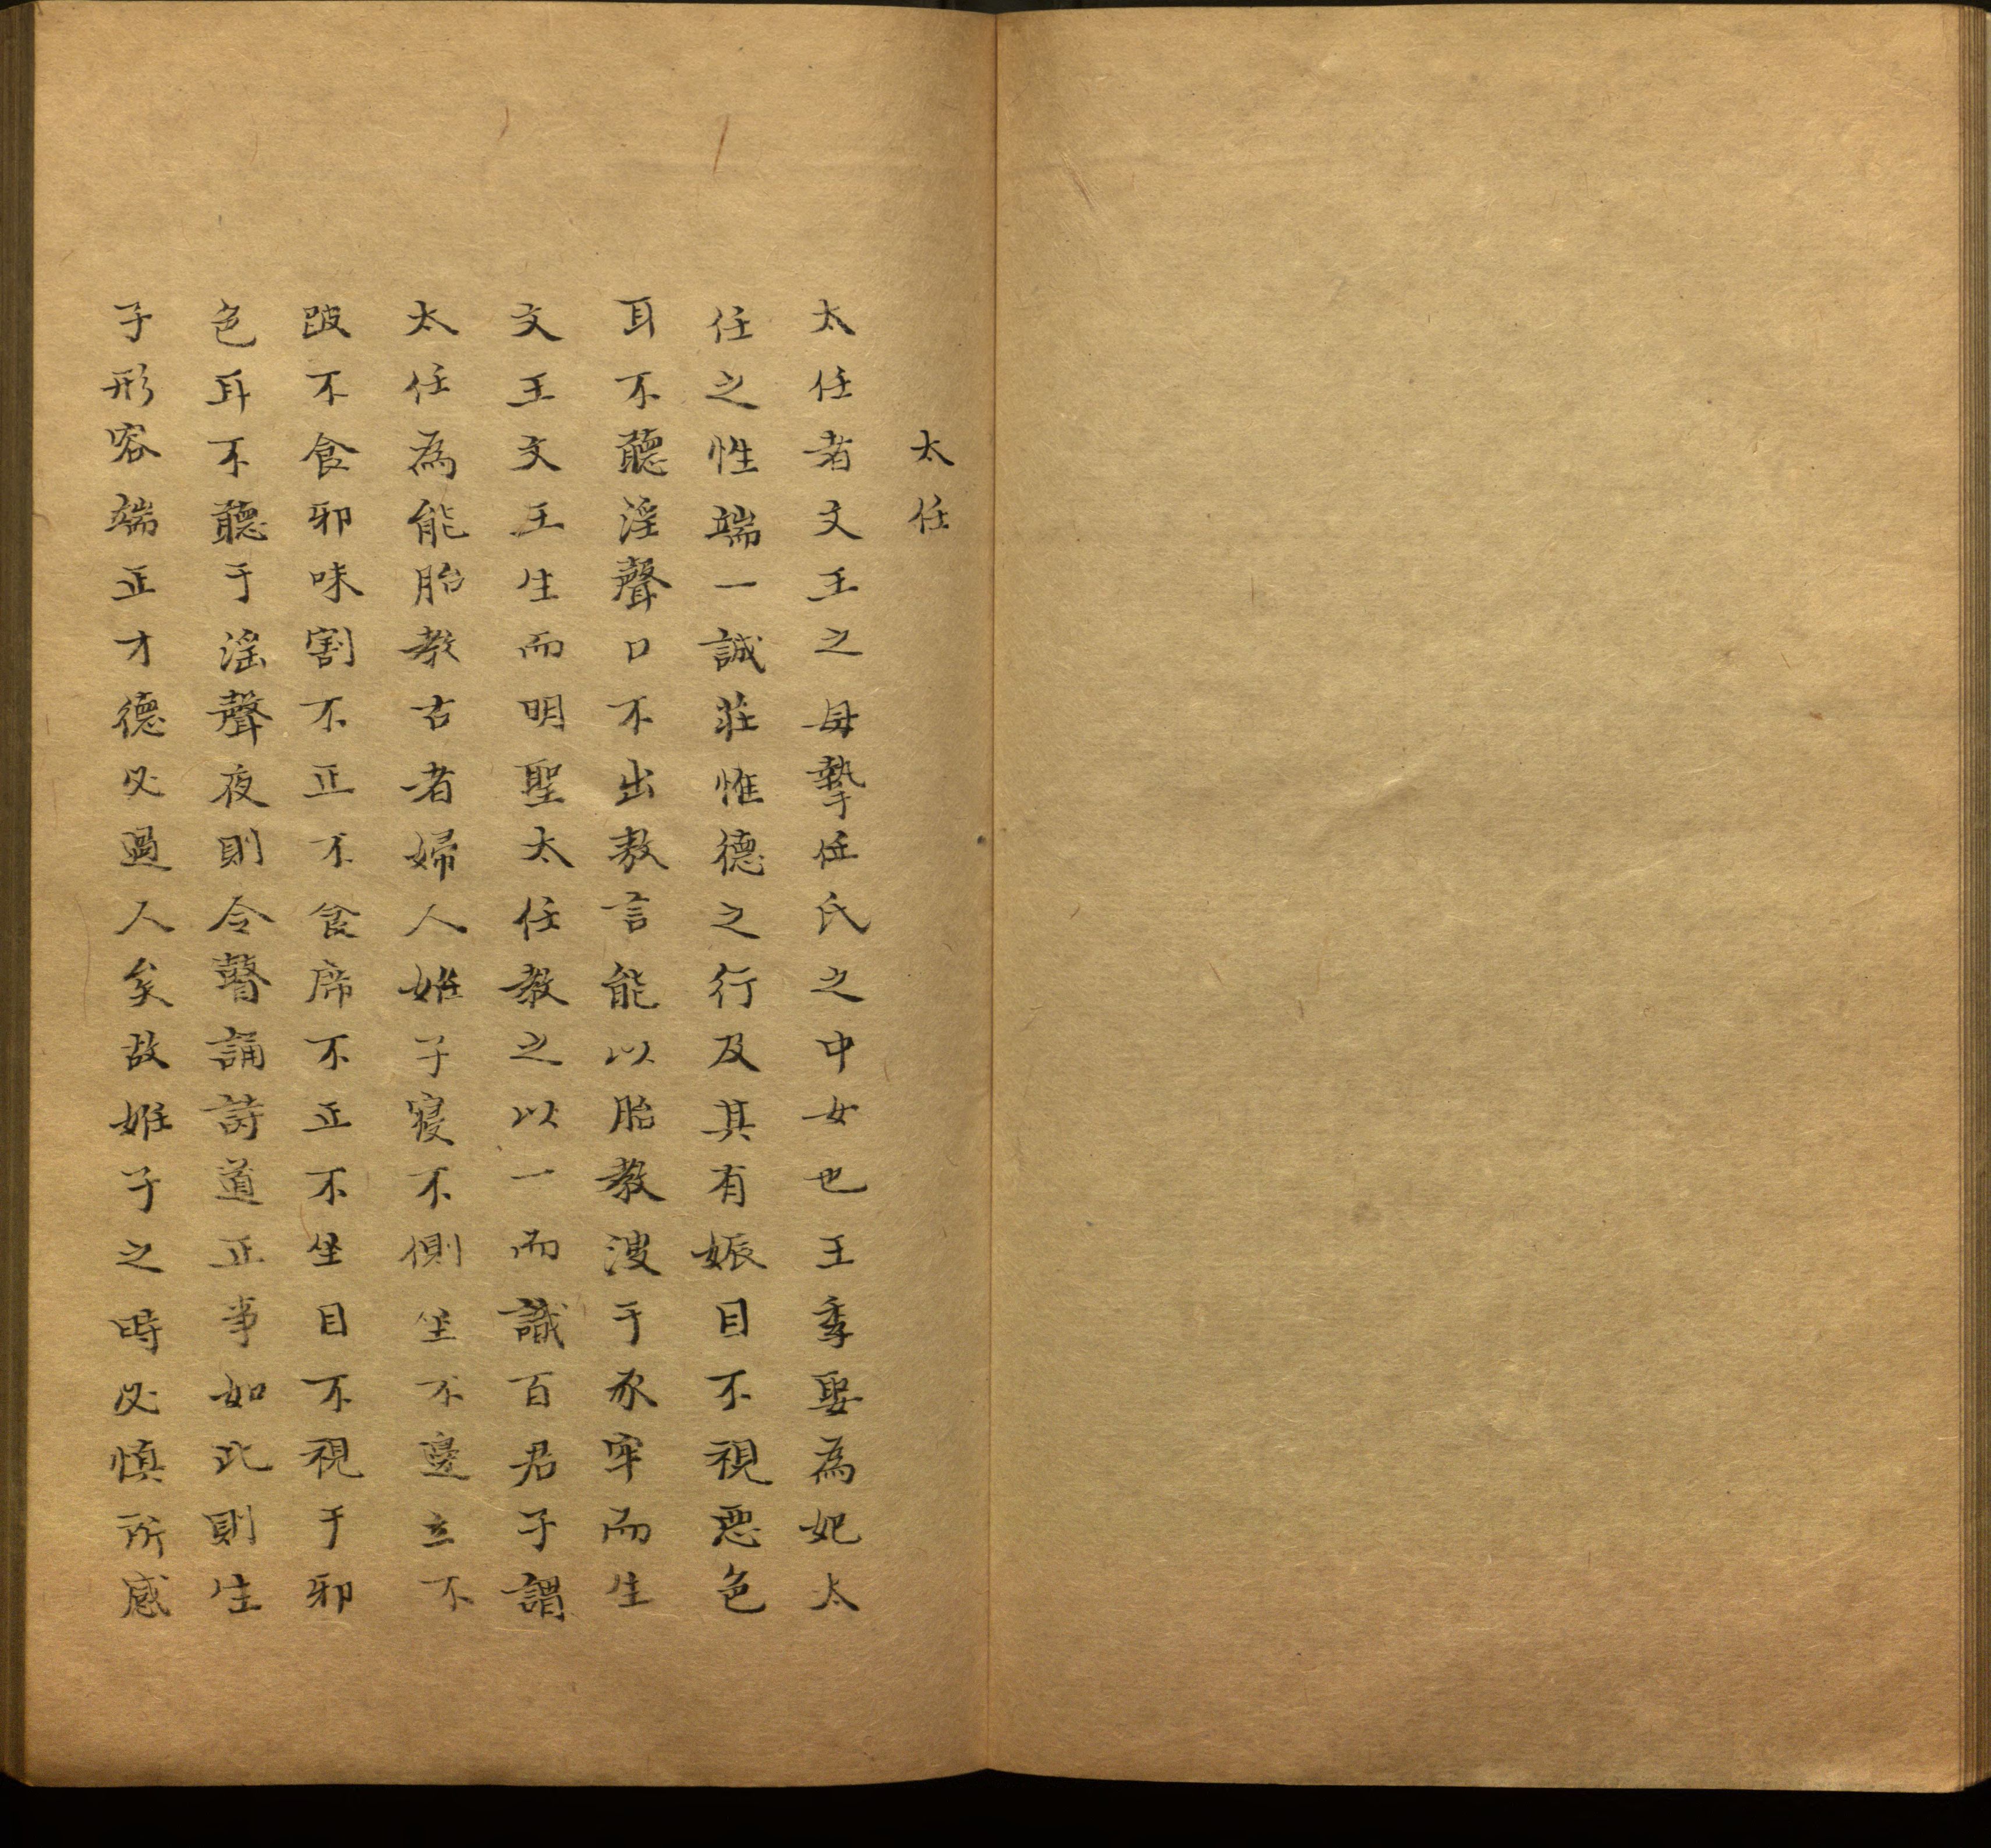 太任
太任者文王之母摯任氏之中女也王季娶為妃太
任之性端一誠莊惟德之行及其有娠目不視惡色
耳不聽淫聲口不出敖言能以胎教溲于豕牢而生
文王文王生而明聖太任教之以一而識百君子謂
太任為能胎教古者婦人妊子寢不側坐不邊立不
跛不食邪味割不正不食席不正不坐目不視于邪
色耳不聽于淫聲夜則令瞽誦詩道正事如此則生
子形容端正才德必過人矣故妊子之時必慎所感